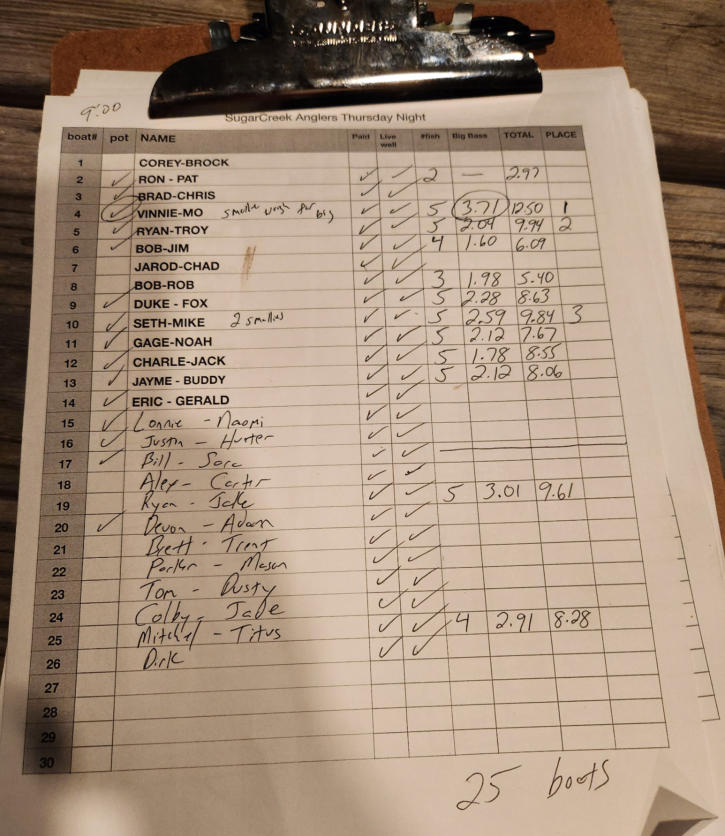 9:00
SugarCreek Anglers Thursday Night
boat# pot NAME Paid Live well #fish Big Bass TOTAL PLACE
1 COREY-BROCK
2 ✓ RON - PAT ✓ ✓ 2 — 2.97
3 ✓ BRAD-CHRIS ✓ ✓
4 ✓ VINNIE-MO smallie weigh for big ✓ ✓ 5 3.71 12.50 1
5 ✓ RYAN-TROY ✓ ✓ 5 2.04 9.94 2
6 ✓ BOB-JIM ✓ ✓ 4 1.60 6.09
7 JAROD-CHAD ✓ ✓
8 BOB-ROB ✓ ✓ 3 1.98 5.40
9 ✓ DUKE - FOX ✓ ✓ 5 2.28 8.63
10 ✓ SETH-MIKE 2 smallies ✓ ✓ 5 2.59 9.84 3
11 ✓ GAGE-NOAH ✓ ✓ 5 2.12 7.67
12 ✓ CHARLE-JACK ✓ ✓ 5 1.78 8.55
13 ✓ JAYME - BUDDY ✓ ✓ 5 2.12 8.06
14 ✓ ERIC - GERALD ✓ ✓
15 ✓ Lonnie - Naomi ✓ ✓
16 ✓ Justin - Hunter ✓ ✓
17 ✓ Bill - Sara ✓ ✓
18 Alex - Carter ✓ ✓
19 Ryan - Jake ✓ ✓ 5 3.01 9.61
20 ✓ Devon - Adam ✓ ✓
21 Brett - Trent ✓ ✓
22 Parker - Mason ✓ ✓
23 Tom - Dusty ✓ ✓
24 Colby - Jade ✓ ✓ 4 2.91 8.28
25 Mitchel - Titus ✓ ✓
26 Dirk ✓ ✓
27
28
29
30
25 boats